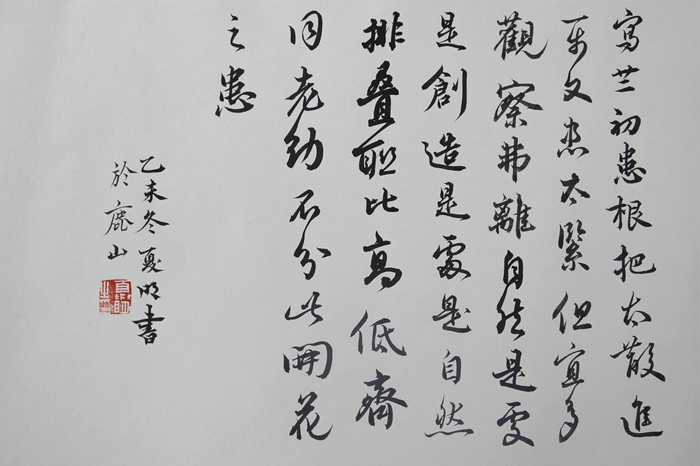 寫兰初患根把太散進
而又患太緊但宜多
觀察弗離自然是處
是創造是處是自然
排叠比高低齊
同老幼不分此開花
之患
乙未冬夏明書
於鹿山